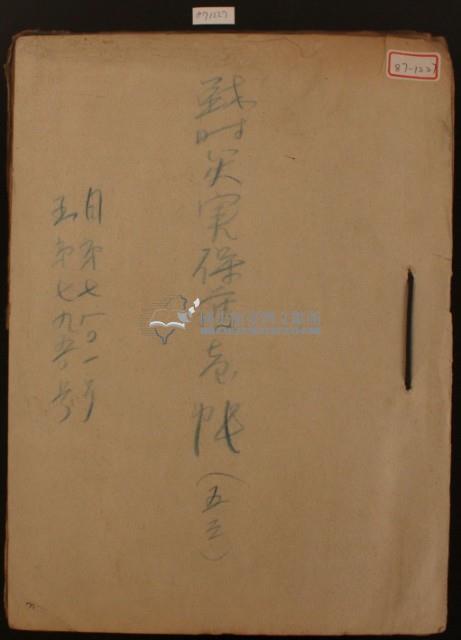 87-1227
87-1227
戦時災害保險台帳(五三)
自第七八〇一号
至第七九五六号